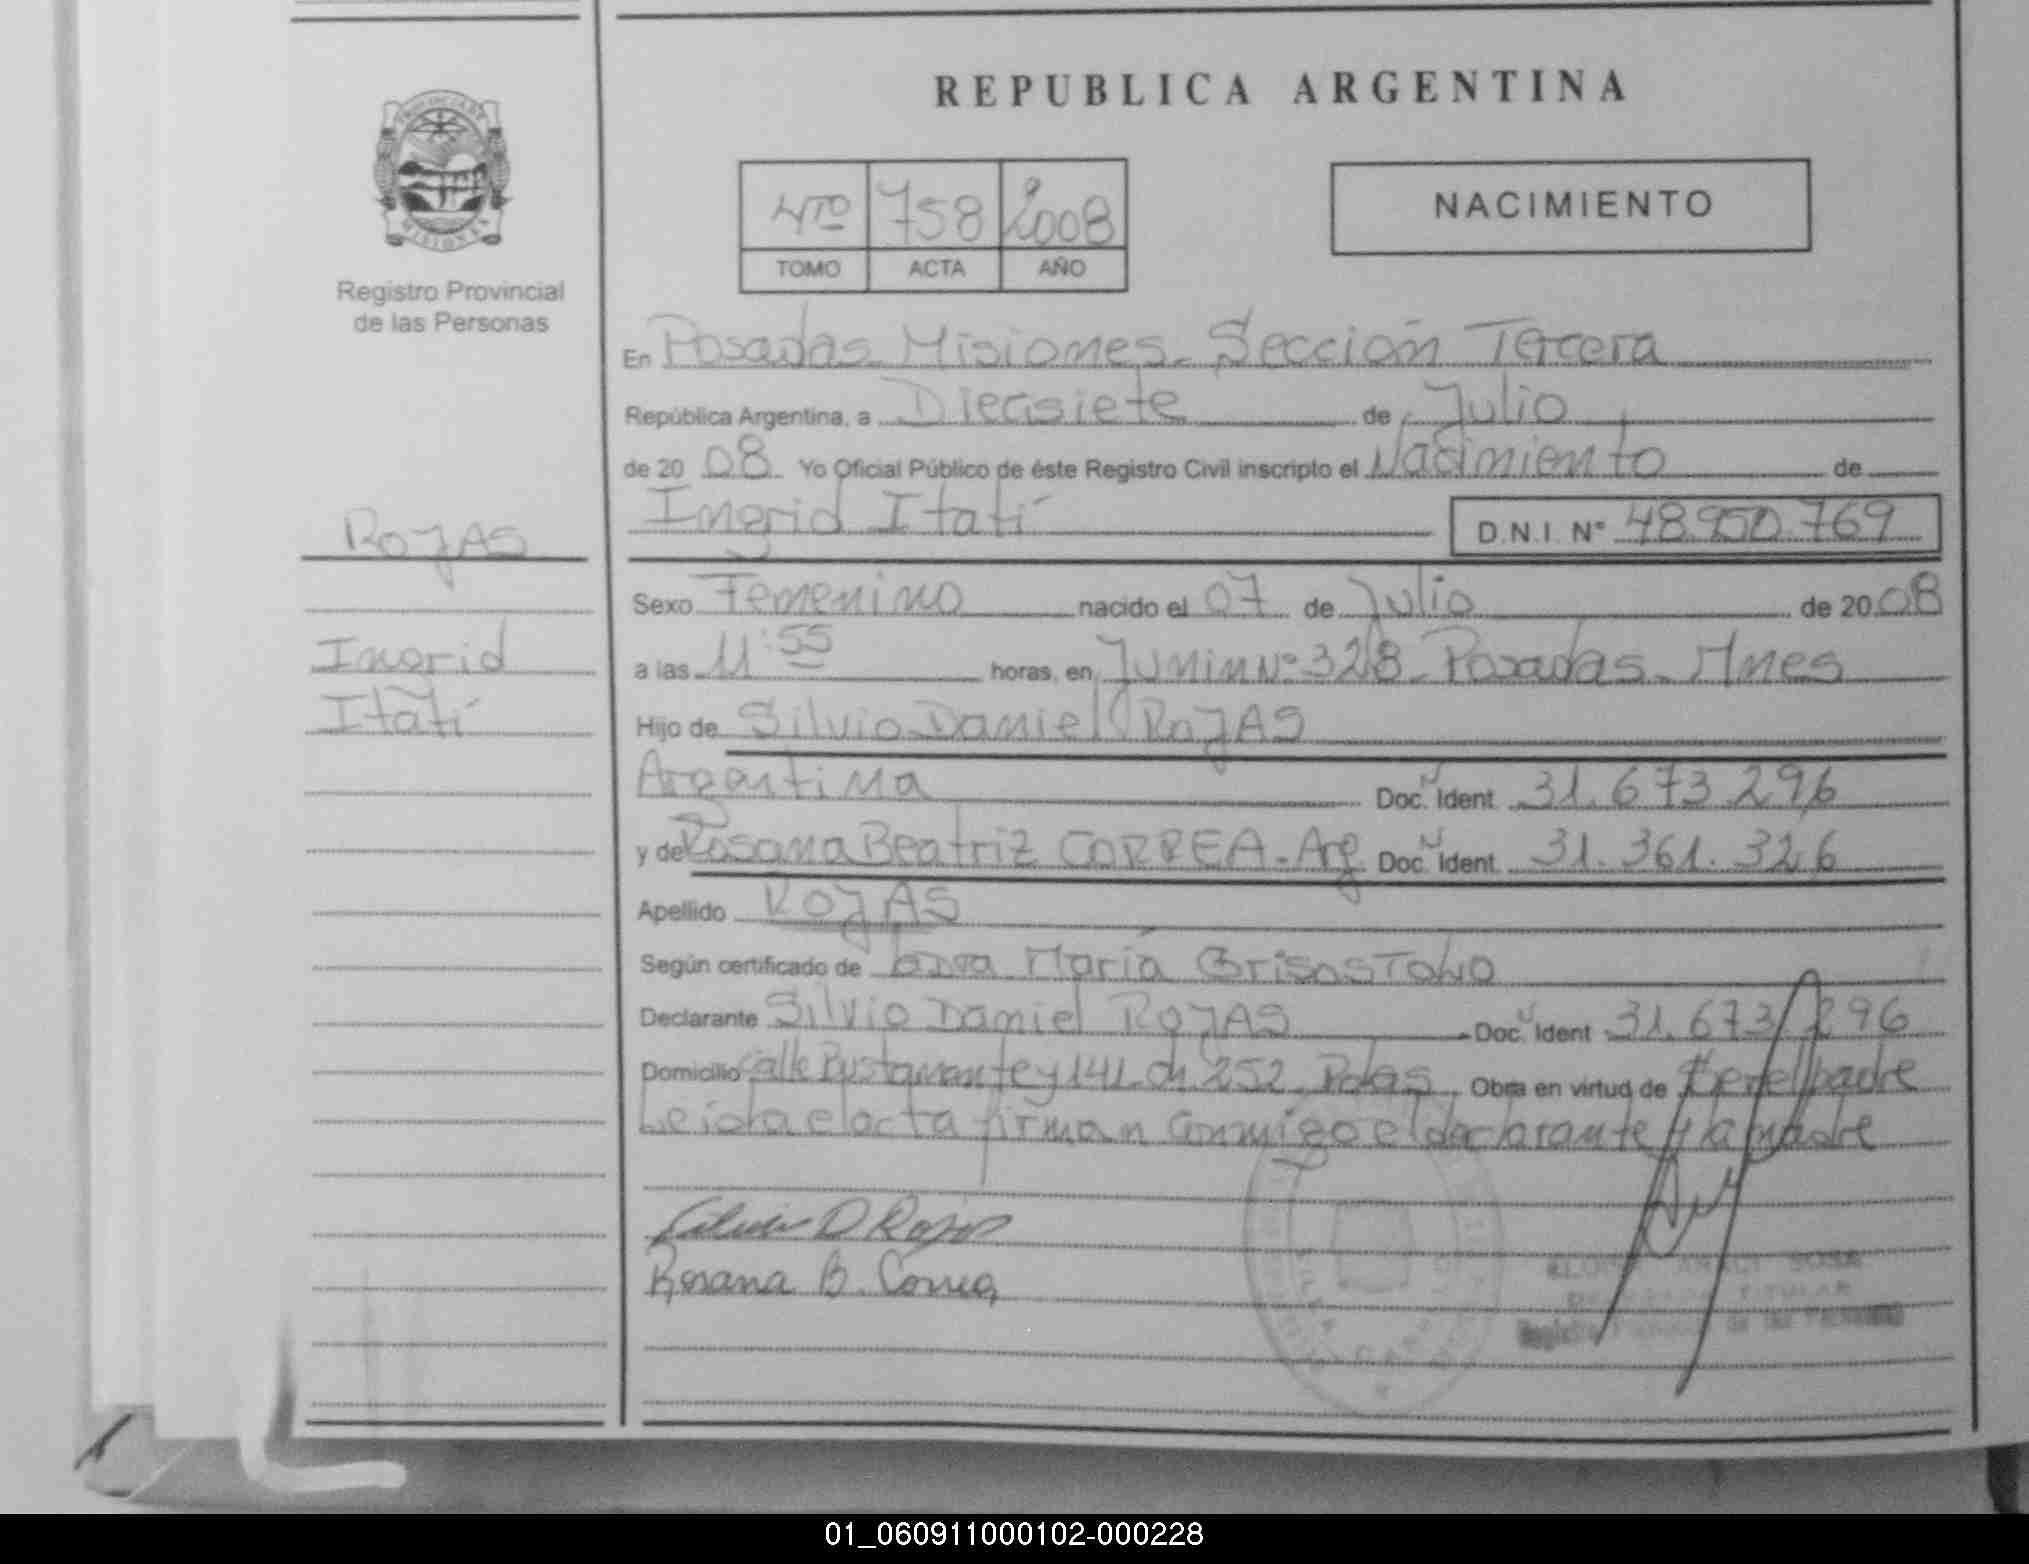 REPUBLICA ARGENTINA
PROVINCIA DE
MISIONES
Registro Provincial
de las Personas
4TO 758 2008
TOMO ACTA AÑO
NACIMIENTO
En Posadas Misiones - Sección Tercera
República Argentina, a Diecisiete de Julio
de 20 08 Yo Oficial Público de éste Registro Civil inscripto el Nacimiento de
Ingrid Itatí D.N.I. N° 48.950.769
ROJAS
Ingrid
Itatí
Sexo Femenino nacido el 07 de Julio de 20 08
a las 11:55 horas, en Junin Nº 328 - Posadas - Mnes
Hijo de Silvio Daniel ROJAS
Argentina Doc. Ident. 31.673.296
y de Rosana Beatriz CORREA - Arg Doc. Ident. 31.361.326
Apellido ROJAS
Según certificado de María
Declarante Silvio Daniel ROJAS Doc. Ident 31.673.296
Domicilio Calle Bustamante y 141 ch 252 Pdas Obra en virtud de ser el padre
Leida el acta firman conmigo el declarante y la madre
Silvio D Rojas
Rosana B. Correa
SOSA
TITULAR
de las Personas
01_060911000102-000228